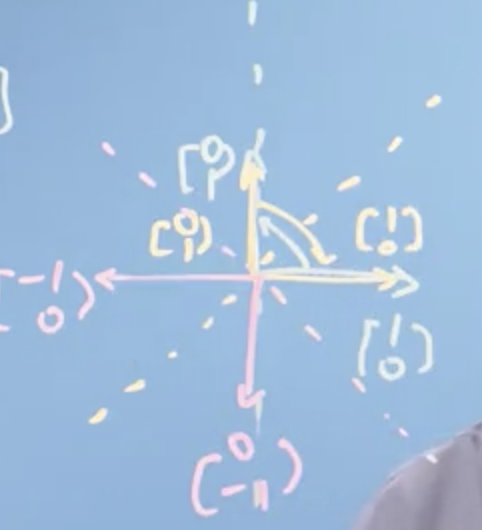 ]
[0
1]
[0
1]
[1
0]
[-1
0]
[1
0]
(0
-1)